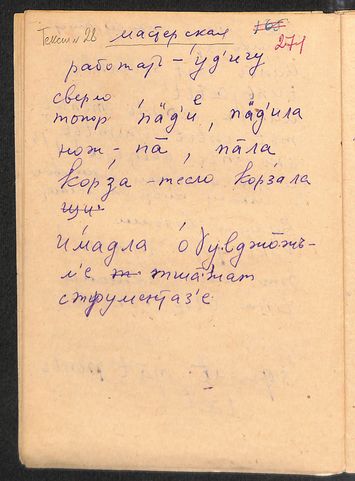 Текст 28 мастерская 165
271
работат – у́д'игу
сверло
топор па̄д'и е, па̄д'ила
нож - па̄, па̄ла
ко́рза - тесло ко́рзала
щи
и́мадла о́бу.вджо̄жъ-
л'е ж тша̄жат
струментаз'е